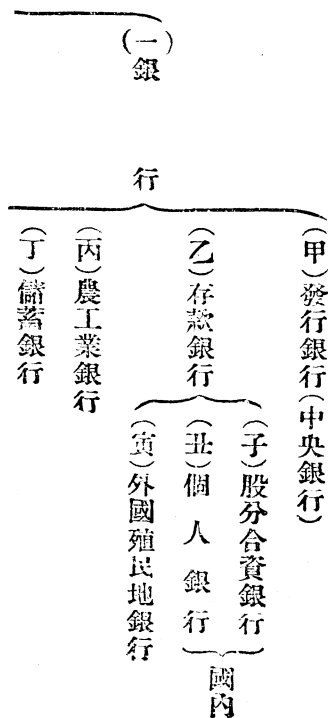 (一)銀行
(甲)發行銀行(中央銀行)
(乙)存款銀行
(子)股分合資銀行
(丑)個人銀行
國內
(寅)外國殖民地銀行
(丙)農工業銀行
(丁)儲蓄銀行